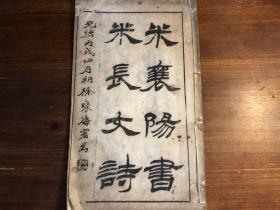 米襄陽書
米長史詩
光緒丙戌四月朔徐家